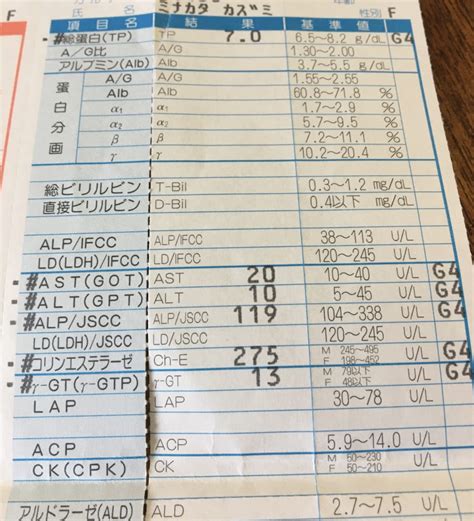 氏 名 ミナカタ カズミ 年齢 性別 F
項目名 結果 基準値
-#総蛋白(TP) TP 7.0 6.5~8.2 g/dL G4
A/G比 A/G 1.30~2.00
アルブミン(Alb) Alb 3.7~5.5 g/dL
蛋白分画 A/G A/G 1.55~2.55
Alb Alb 60.8~71.8 %
α₁ α₁ 1.7~2.9 %
α₂ α₂ 5.7~9.5 %
β β 7.2~11.1 %
γ γ 10.2~20.4 %
総ビリルビン T-Bil 0.3~1.2 mg/dL
直接ビリルビン D-Bil 0.4以下 mg/dL
ALP/IFCC ALP/IFCC 38~113 U/L
LD(LDH)/IFCC LD/IFCC 120~245 U/L
-#AST(GOT) AST 20 10~40 U/L G4
-#ALT(GPT) ALT 10 5~45 U/L G4
-#ALP/JSCC ALP/JSCC 119 104~338 U/L G4
LD(LDH)/JSCC LD/JSCC 120~245 U/L
-#コリンエステラーゼ Ch-E 275 M 245~495 F 198~452 U/L G4
-#γ-GT(γ-GTP) γ-GT 13 M 79以下 F 48以下 U/L G4
LAP LAP 30~78 U/L
ACP ACP 5.9~14.0 U/L
CK(CPK) CK M 50~230 F 50~210 U/L
アルドラーゼ(ALD) ALD 2.7~7.5 U/L